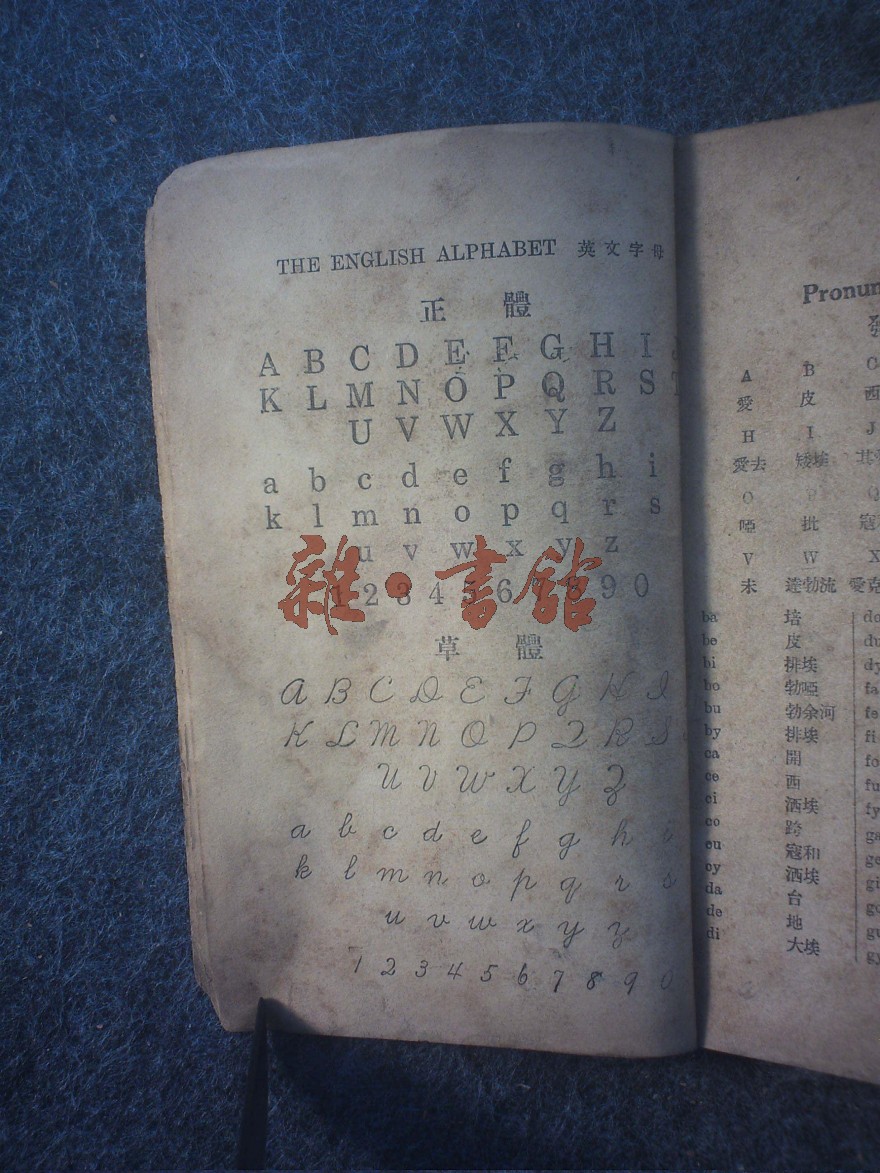 THE ENGLISH ALPHABET 英文字母
正體
A B C D E F G H I
K L M N O P Q R S T
U V W X Y Z
a b c d e f g h i
k l m n o p q r s
u v w x y z
1 2 3 4 5 6 7 8 9 0
雜·書館
草體
A B C D E F G H I
K L M N O P Q R S
U V W X Y Z
a b c d e f g h i
k l m n o p q r s
u v w x y z
1 2 3 4 5 6 7 8 9 0
Pronun
A B C
愛 皮 西
H I J
愛去 矮埃
O P Q
啞 批 寇
V W X
未 達勃流 愛克
ba 培 do
be 皮 du
bi 排埃 dy
bo 勃啞 fa
bu 勃余河 fe
by 排埃 fi
ca 開 fo
ce 西 fu
ci 洒埃 fy
co 跨 ga
cu 寇和 ge
cy 洒埃 gi
da 台 go
de 地 gu
di 大埃 gy